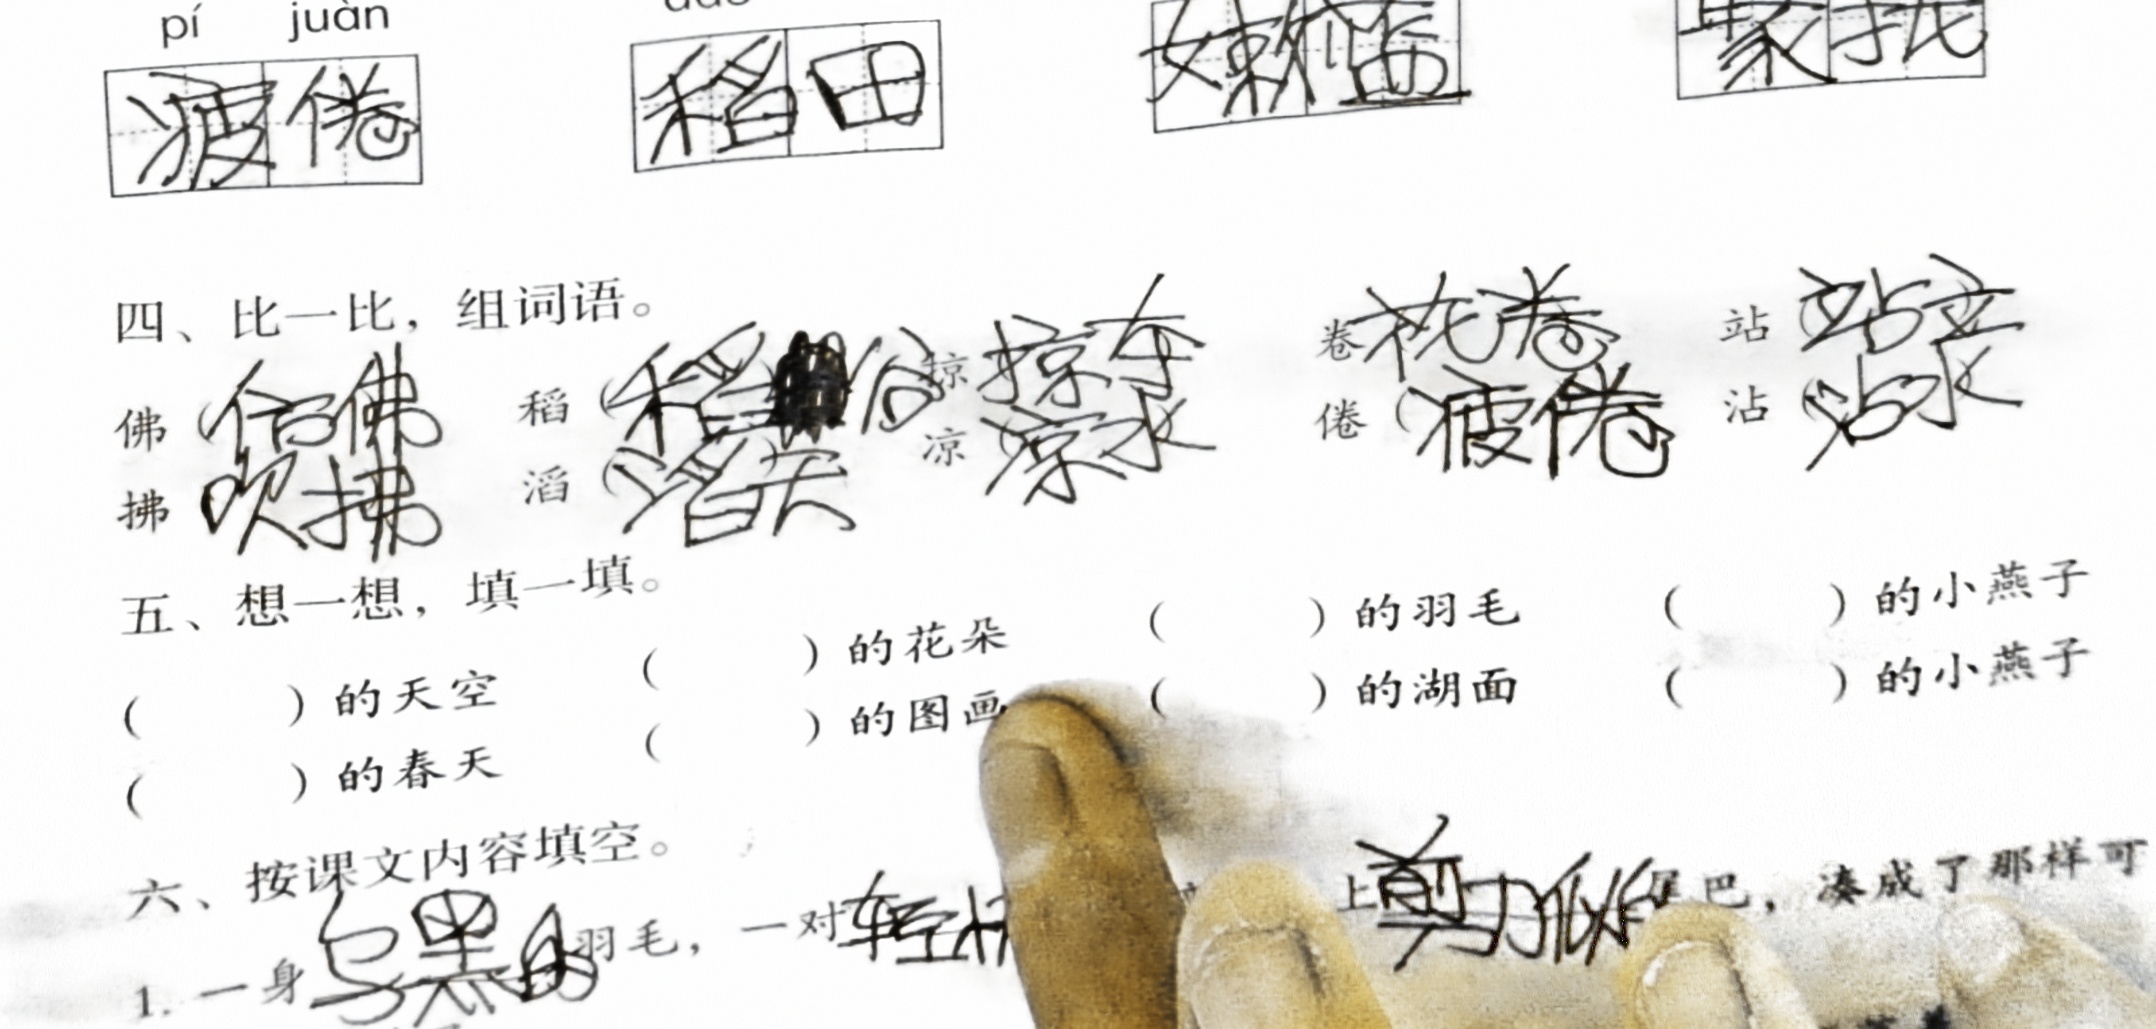 pí juàn
疲倦 稻田
四、比一比，组词语。
佛（仿佛 稻（稻谷 掠 掠夺 卷 枕卷 站（站立
拂 吹拂 滔（滔天 凉（凉水 倦（疲倦 沾（沾水
五、想一想，填一填。
（ ）的天空 （ ）的花朵 （ ）的羽毛 （ ）的小燕子
（ ）的春天 （ ）的图画 （ ）的湖面 （ ）的小燕子
六、按课文内容填空。
1. 一身乌黑的羽毛，一对轻 上剪刀似的尾巴，凑成了那样可